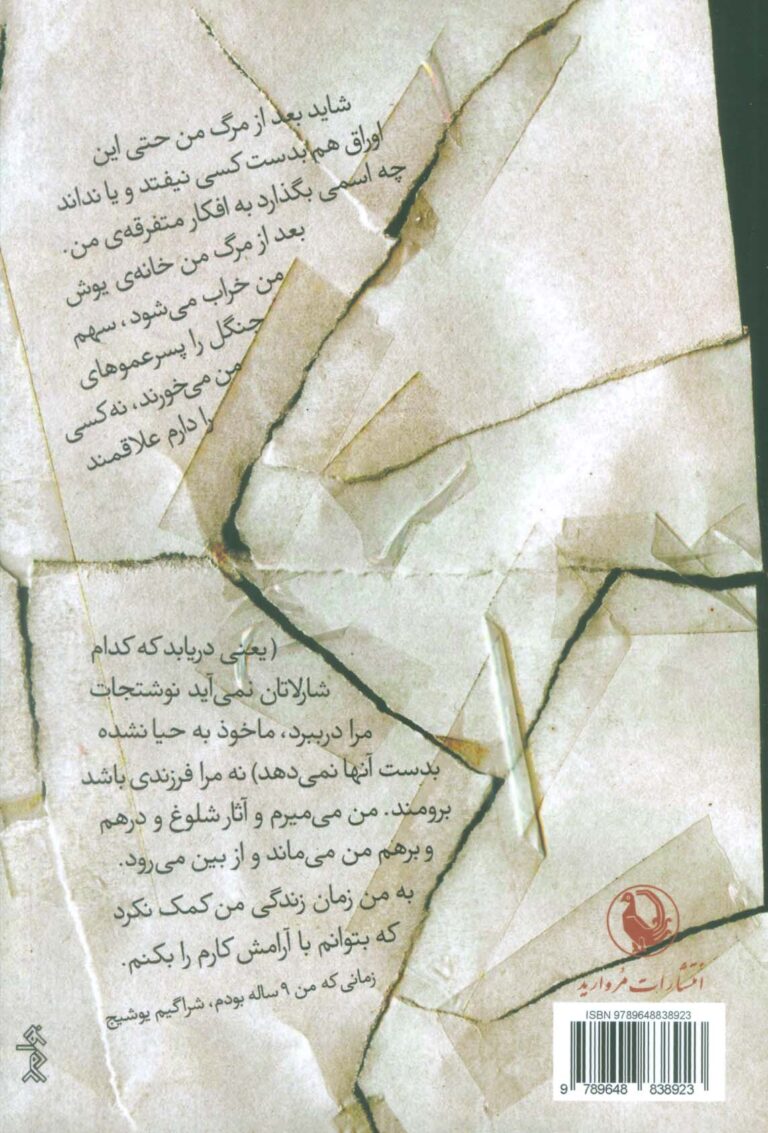 شاید بعد از مرگ من حتی این
اوراق هم بدست کسی نیفتد و یا نداند
چه اسمی بگذارد به افکار متفرقه‌ی من.
بعد از مرگ من خانه‌ی یوش
من خراب می‌شود، سهم
جنگل را پسرعموهای
من می‌خورند، نه کسی
را دارم علاقمند
(یعنی دریابد که کدام
شارلاتان نمی‌آید نوشتجات
مرا درببرد، ماخوذ به حیا نشده
بدست آنها نمی‌دهد) نه مرا فرزندی باشد
برومند. من می‌میرم و آثار شلوغ و درهم
و برهم من می‌ماند و از بین می‌رود.
به من زمان زندگی من کمک نکرد
که بتوانم با آرامش کارم را بکنم.
زمانی که من ۹ ساله بودم، شراگیم یوشیج
انتشارات مروارید
ISBN 9789648838923
9 789648 838923